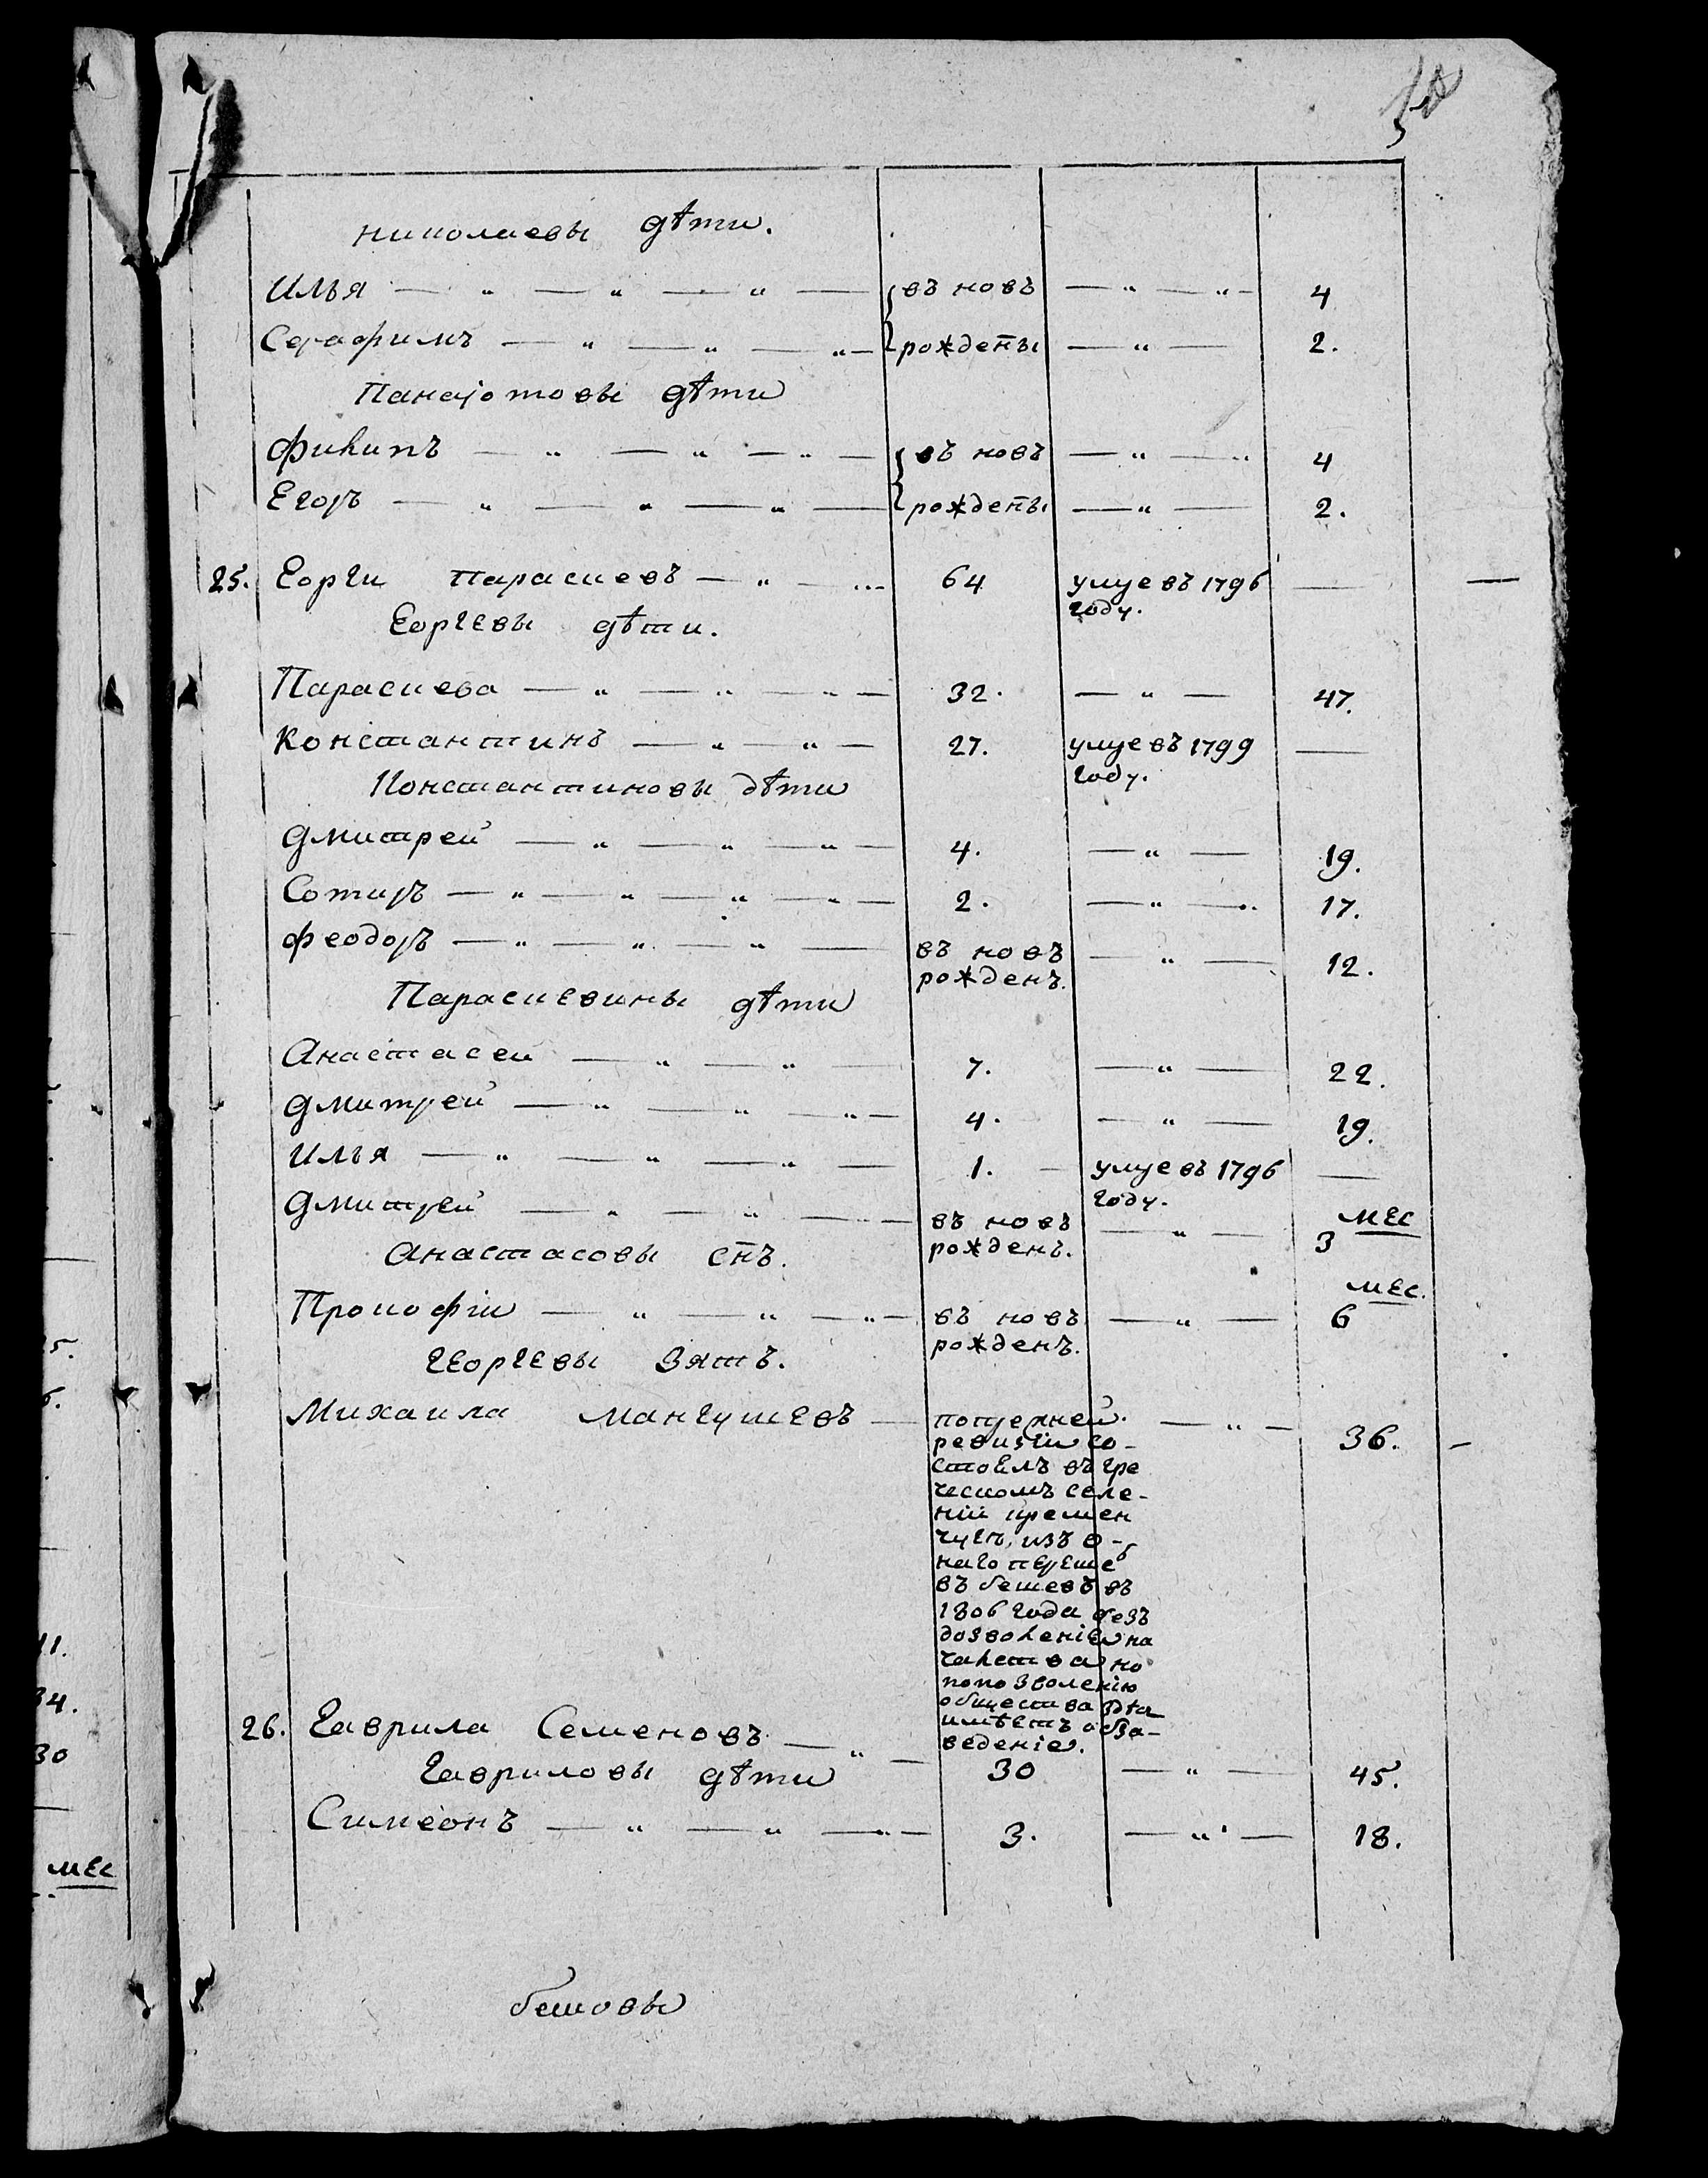 николаевы дѣти.
Илья — " — " — " — въ новъ — " — " — 4
Серафимъ — " — " — " — рождены — " — 2.
Панаіотовы дѣти
Филипъ — " — " — " — въ новъ — " — " 4
Егоръ — " — " — " — рождены — " — 2.
25. Еорги Парасиевъ — " — 64 умре въ 1796 — —
году.
Еоргевы дѣти.
Парасиева — " — " — " — 32. — " — 47.
Константинъ — " — " — 27. умре въ 1799 —
году.
Константиновы дѣти
Дмитрей — " — " — " — 4. — " — 19.
Сотиръ — " — " — " — " — 2. — " — 17.
Феодоръ — " — " — " — въ новъ — " — 12.
рожденъ.
Парасиевины дѣти
Анастасей — " — " — 7. — " — 22.
Дмитрей — " — " — " — 4. — " — 19.
Илья — " — " — " — 1. — умре въ 1796 —
году.
Дмитрей — " — " — " — въ новъ — " — 3 мес
рожденъ.
Анастасовы снъ.
Прокофіи — " — " — " — въ новъ — " — 6 мес.
рожденъ.
Георгевы зять.
Михаила Мангушевъ — — " — 36. —
ревизіи со-
стоялъ въ гре
ческомъ селе-
ніи кремен
чугъ, изъ о-
наго переше
въ бешевъ въ
1806 года безъ
дозволеніи на
чалства но
попозволенію
общества где
имѣетъ обза-
веденіе.
26. Гаврила Семеновъ — " — 30 — " — 45.
Гавриловы дѣти
Симеонъ — " — " — " — 3. — " — 18.
бешовы
5.
6.
11.
34.
30
мес